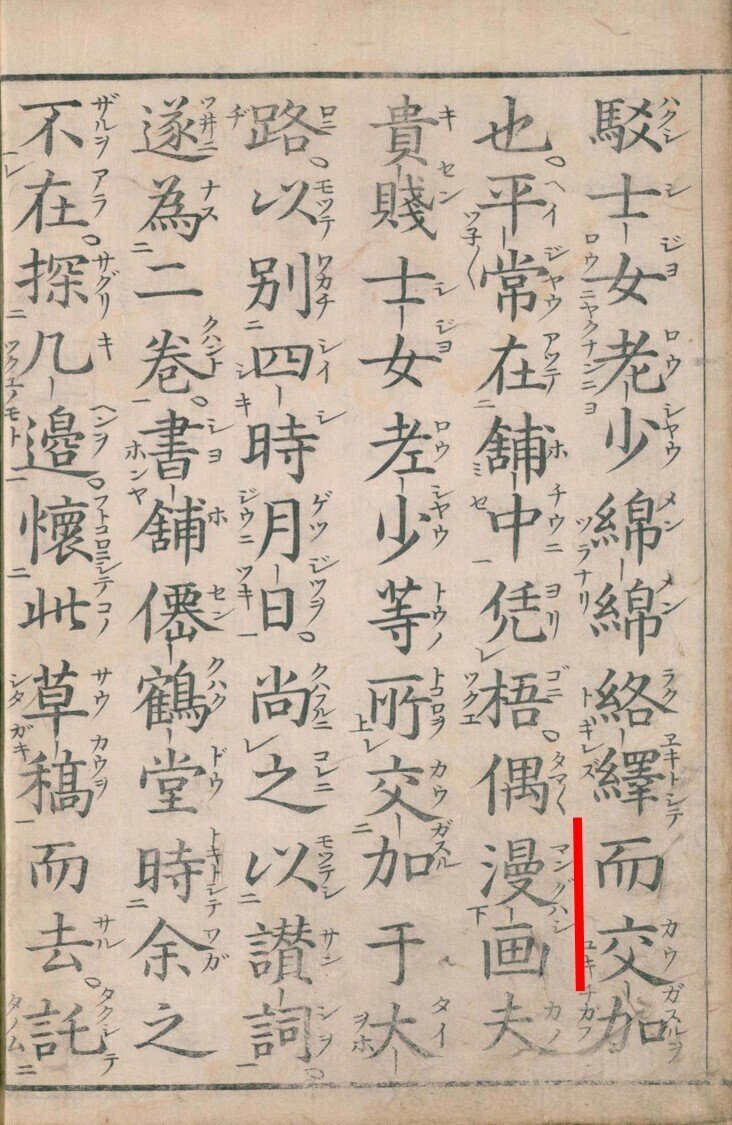 駁士女老少綿綿絡繹而交加
也。平常在舖中凭梧。偶漫画夫
貴賤士女老少等所交加于大
路。以別四時月日。尚之以讃詞。
遂為二卷。書舖僊鶴堂時余之
不在。探几邊。懷此草稿而去。託